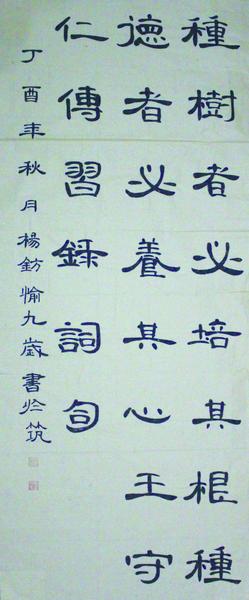 種樹者必培其根種
德者必養其心王守
仁傳習錄詞句
丁酉年秋月楊鈁愉九歲書於筑